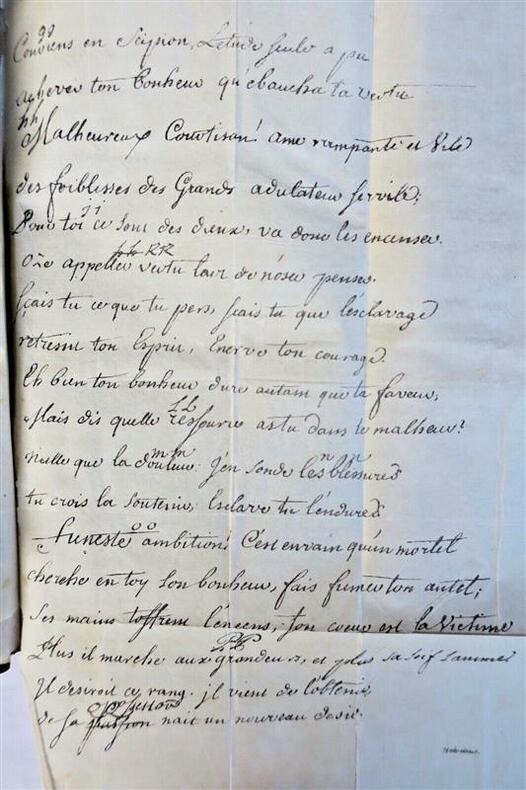 gg
Conviens en Scipion, L'etude seule a pu
achever ton bonheur qu'ebaucha ta vertu
hh
Malheureux Courtisan! ame rampante et Vile
des foiblesses des Grands adulateur servile;
ii
Pour toi ce sont des dieux, va donc les encenser.
kk RR
Oze appeller vertu l'art de n'oser penser.
sçais tu ce que tu pers, sçais tu que l'esclavage
retressit ton Esprit, Enerve ton courage.
Eh bien ton bonheur dure autant que ta faveur,
LL
Mais dis quelle ressource as tu dans le malheur?
mm nn
nulle que la douleur: J'en sonde les blessures
tu crois la soutenir, Esclave tu l'endures
oo
funeste ambition! C'est en vain qu'un mortel
cherche en toy son bonheur, fais fumer ton autel;
Ses mains t'offrent l'encens, ton coeur est la Victime
PP
Plus il marche aux grandeurs, et plus sa soif s'anime
Il desiroit ce rang. il vient de l'obtenir,
de sa nait un nouveau desir.